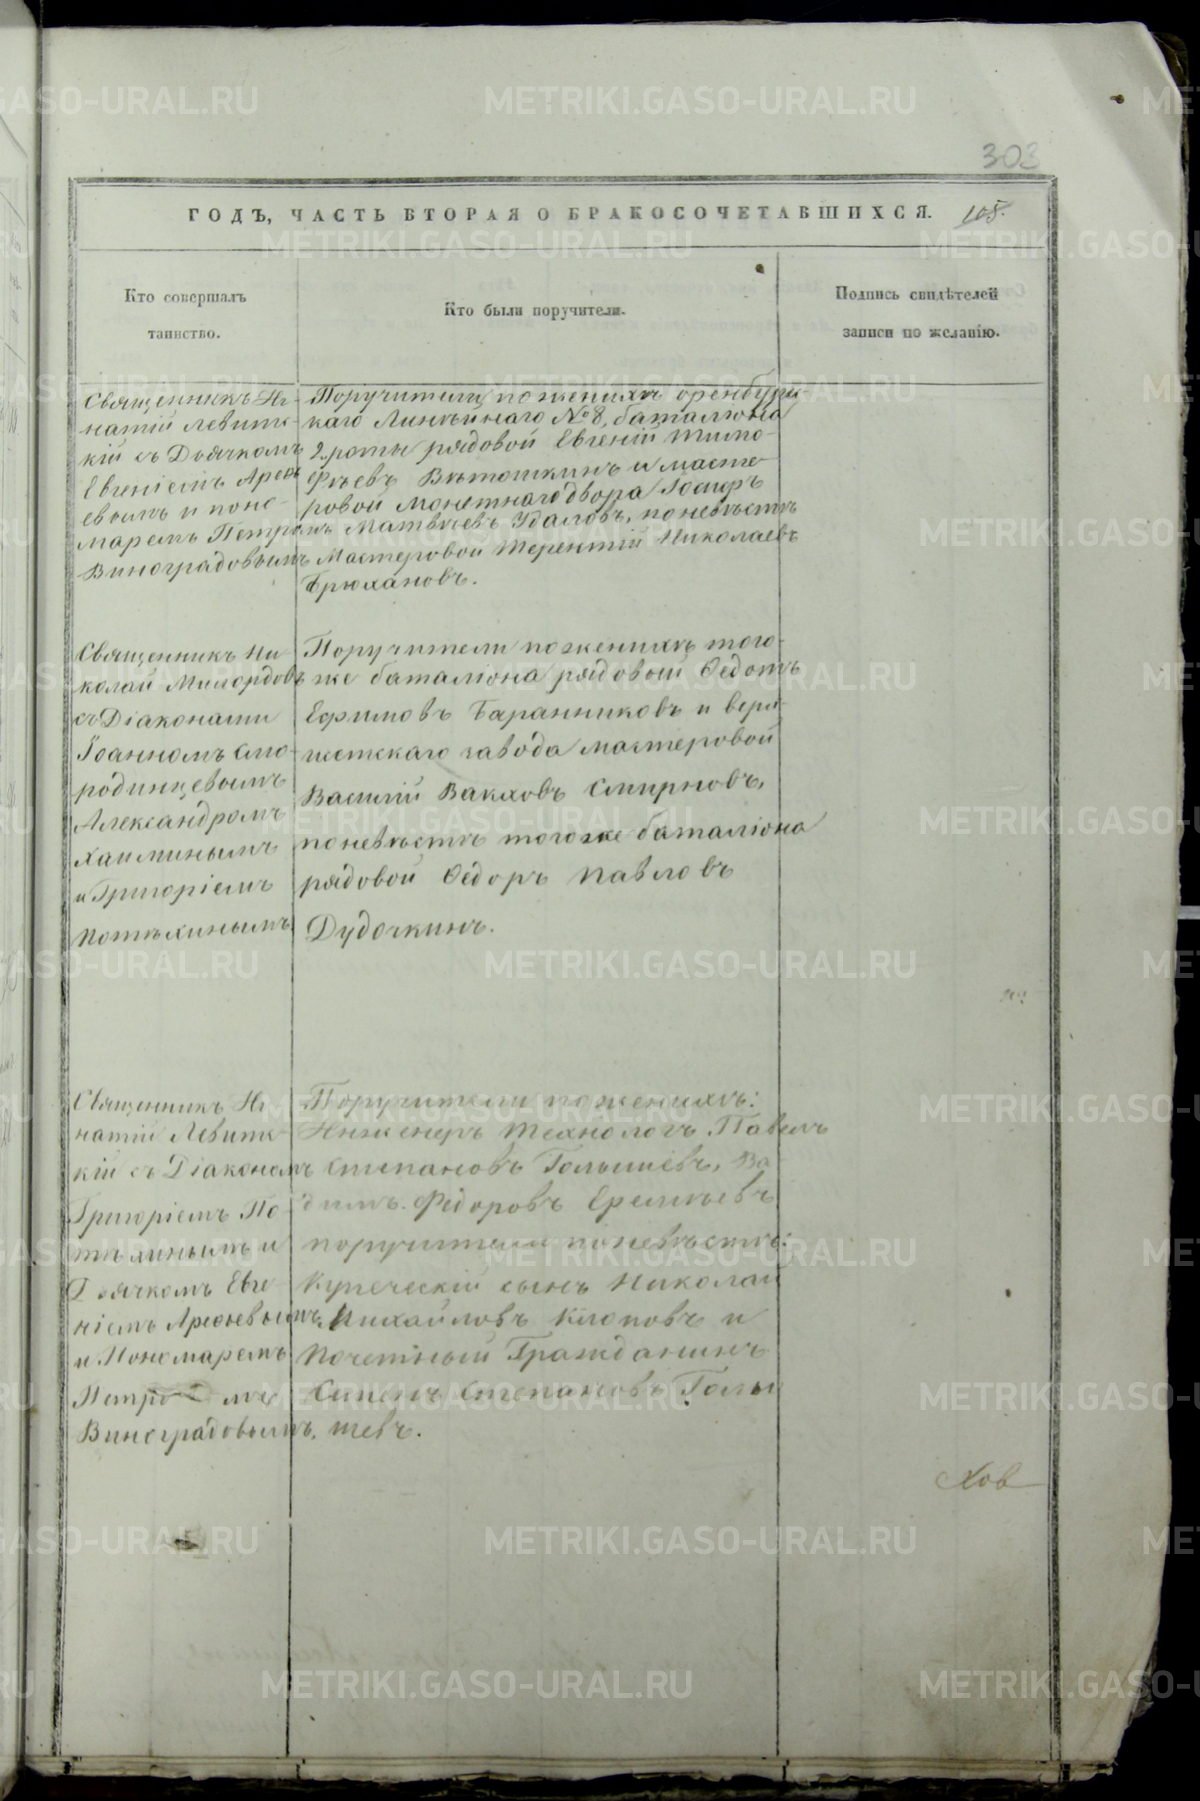 303
ГОДЪ, ЧАСТЬ ВТОРАЯ О БРАКОСОЧЕТАВШИХСЯ. 105.
Кто совершалъ
таинство.
Кто были поручители.
Подпись свидѣтелей
записи по желанію.
Священникъ Иг-
натій Левитс-
кій съ Дьячкомъ
Евгеніемъ Арефь
евымъ и поно-
маремъ Петромъ
Виноградовымъ
Поручители по женихѣ оренбургс-
каго Линѣйнаго № 8, баталіона
2 роты рядовой Евгеній Тимо-
фѣевъ Вѣтошкинъ и масте-
ровой монетнаго двора Іосифъ
Матвѣевъ Удаловъ, по невѣстѣ
Мастеровой Терентій Николаевъ
Брюхановъ.
Священникъ Ни
колай Милордовъ
съ Діаконами
Іоанномъ Смо-
родинцевымъ
Александромъ
Хаиминымъ
и Григоріемъ
Потѣхинымъ
Поручители по женихѣ того-
же баталіона рядовой Ѳедотъ
Ефимовъ Баранниковъ и верх-
исетскаго завода мастеровой
Василій Вакховъ Смирновъ,
по невѣстѣ тогоже баталіона
рядовой Ѳедоръ Павловъ
Дудочкинъ.
Священникъ Иг
натій Левитс
кій съ Діакономъ
Григоріемъ По-
тѣхинымъ и
Дьячкомъ Евге-
ніемъ Арефьевымъ
и Пономаремъ
Петромъ
Виноградовымъ.
Поручители по женихѣ:
Инженеръ Технологъ Павелъ
Степановъ Голышевъ, Ва-
димъ Федоровъ Еремѣевъ
поручители по невѣстѣ:
Купеческій сынъ Николай
Михайловъ Клоповъ и
Почетный Гражданинъ
Степановъ Голы
шевъ.
Хов
METRIKI.GASO-URAL.RU